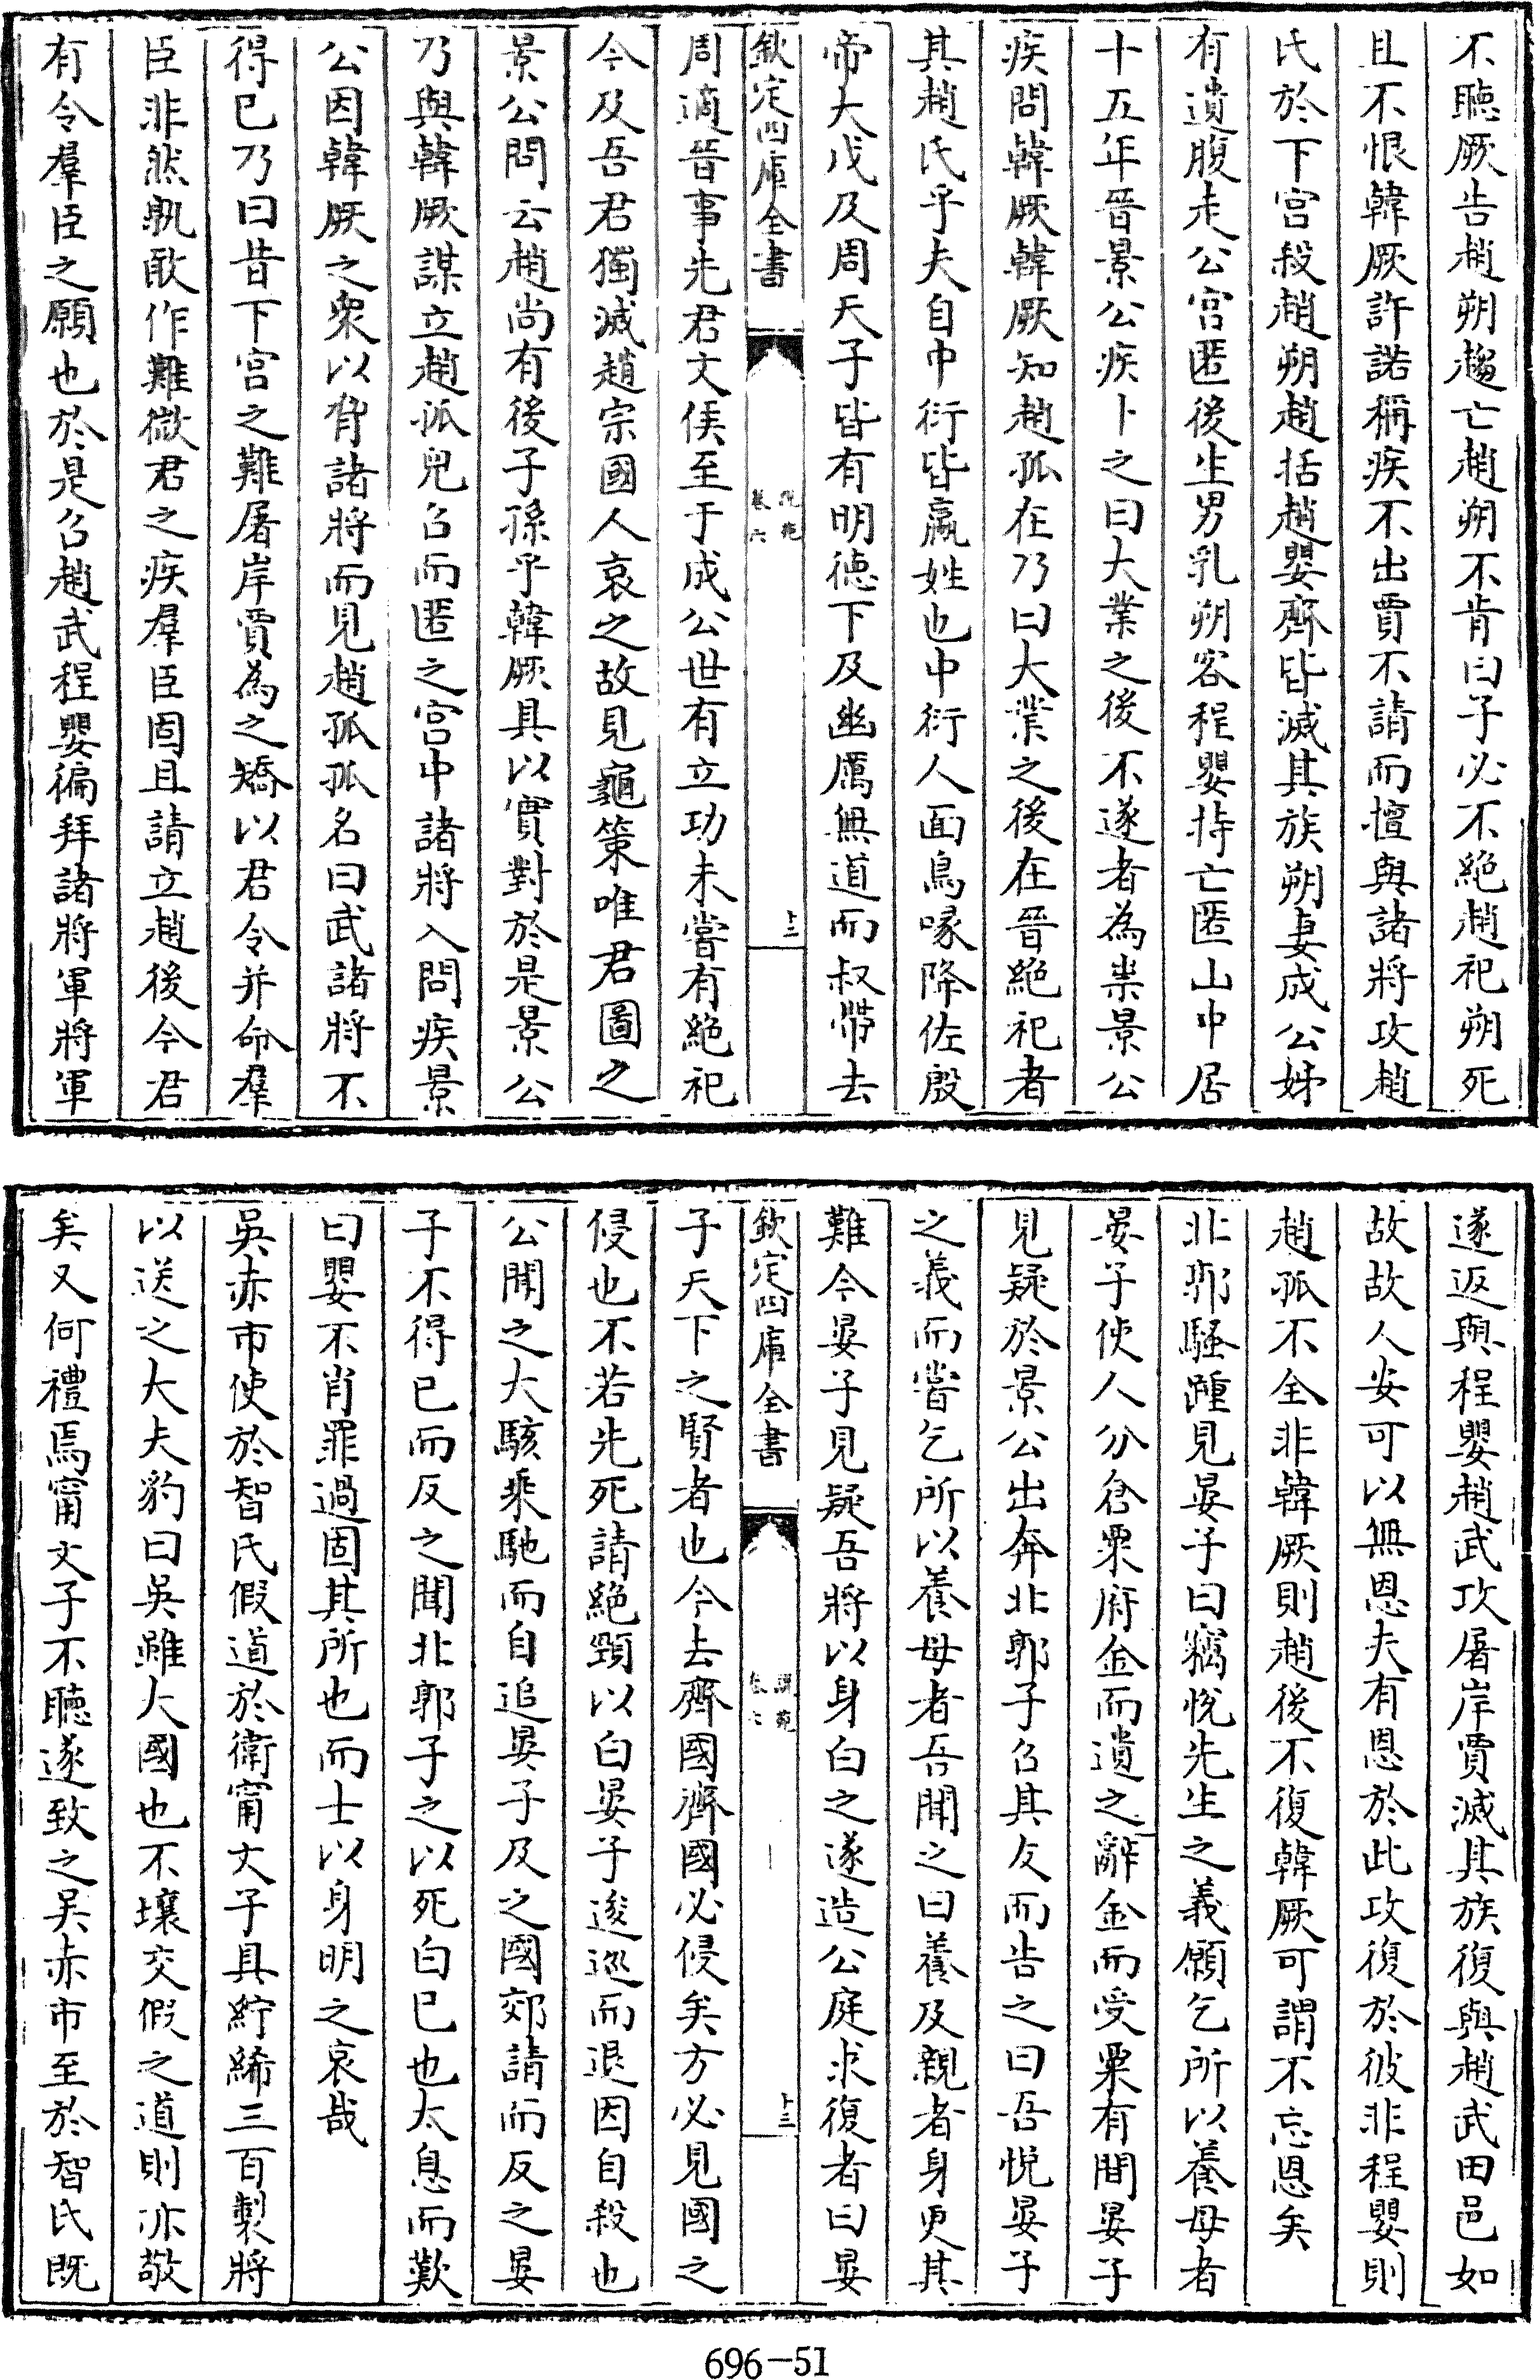 不聽厥告趙朔趨亡趙朔不肯曰子必不絶趙祀朔死
且不恨韓厥許諾稱疾不出賈不請而擅與諸將攻趙
氏於下宮殺趙朔趙括趙嬰齊皆滅其族朔妻成公姊
有遺腹走公宮匿後生男乳朔客程嬰持亡匿山中居
十五年晉景公疾卜之曰大業之後不遂者為祟景公
疾問韓厥韓厥知趙孤在乃曰大業之後在晉絶祀者
其趙氏乎夫自中衍皆嬴姓也中衍人面鳥喙降佐殷
帝大戊及周天子皆有明德下及幽厲無道而叔帶去
欽定四庫全書
說苑
卷六
十二
周適晉事先君文侯至于成公世有立功未嘗有絶祀
今及吾君獨滅趙宗國人哀之故見龜策唯君圖之
景公問云趙尚有後子孫乎韓厥具以實對於是景公
乃與韓厥謀立趙孤兒召而匿之宮中諸將入問疾景
公因韓厥之衆以脅諸將而見趙孤孤名曰武諸將不
得已乃曰昔下宮之難屠岸賈為之矯以君令并命羣
臣非然孰敢作難微君之疾羣臣固且請立趙後今君
有令羣臣之願也於是召趙武程嬰徧拜諸將軍將軍
遂返與程嬰趙武攻屠岸賈滅其族復與趙武田邑如
故故人安可以無恩夫有恩於此攻復於彼非程嬰則
趙孤不全非韓厥則趙後不復韓厥可謂不忘恩矣
北郭騷踵見晏子曰竊悅先生之義願乞所以養母者
晏子使人分倉粟府金而遺之辭金而受粟有間晏子
見疑於景公出奔北郭子召其友而告之曰吾悅晏子
之義而嘗乞所以養母者吾聞之曰養及親者身更其
難今晏子見疑吾將以身白之遂造公庭求復者曰晏
欽定四庫全書
說苑
卷六
十三
子天下之賢者也今去齊國齊國必侵矣方必見國之
侵也不若先死請絶頸以白晏子逡巡而退因自殺也
公聞之大駭乘馳而自追晏子及之國郊請而反之晏
子不得已而反之聞北郭子之以死白已也太息而歎
曰嬰不肖罪過固其所也而士以身明之哀哉
吳赤市使於智氏假道於衛甯文子具紵絺三百製將
以送之大夫豹曰吳雖大國也不壤交假之道則亦敬
矣又何禮焉甯文子不聽遂致之吳赤市至於智氏既
696-51